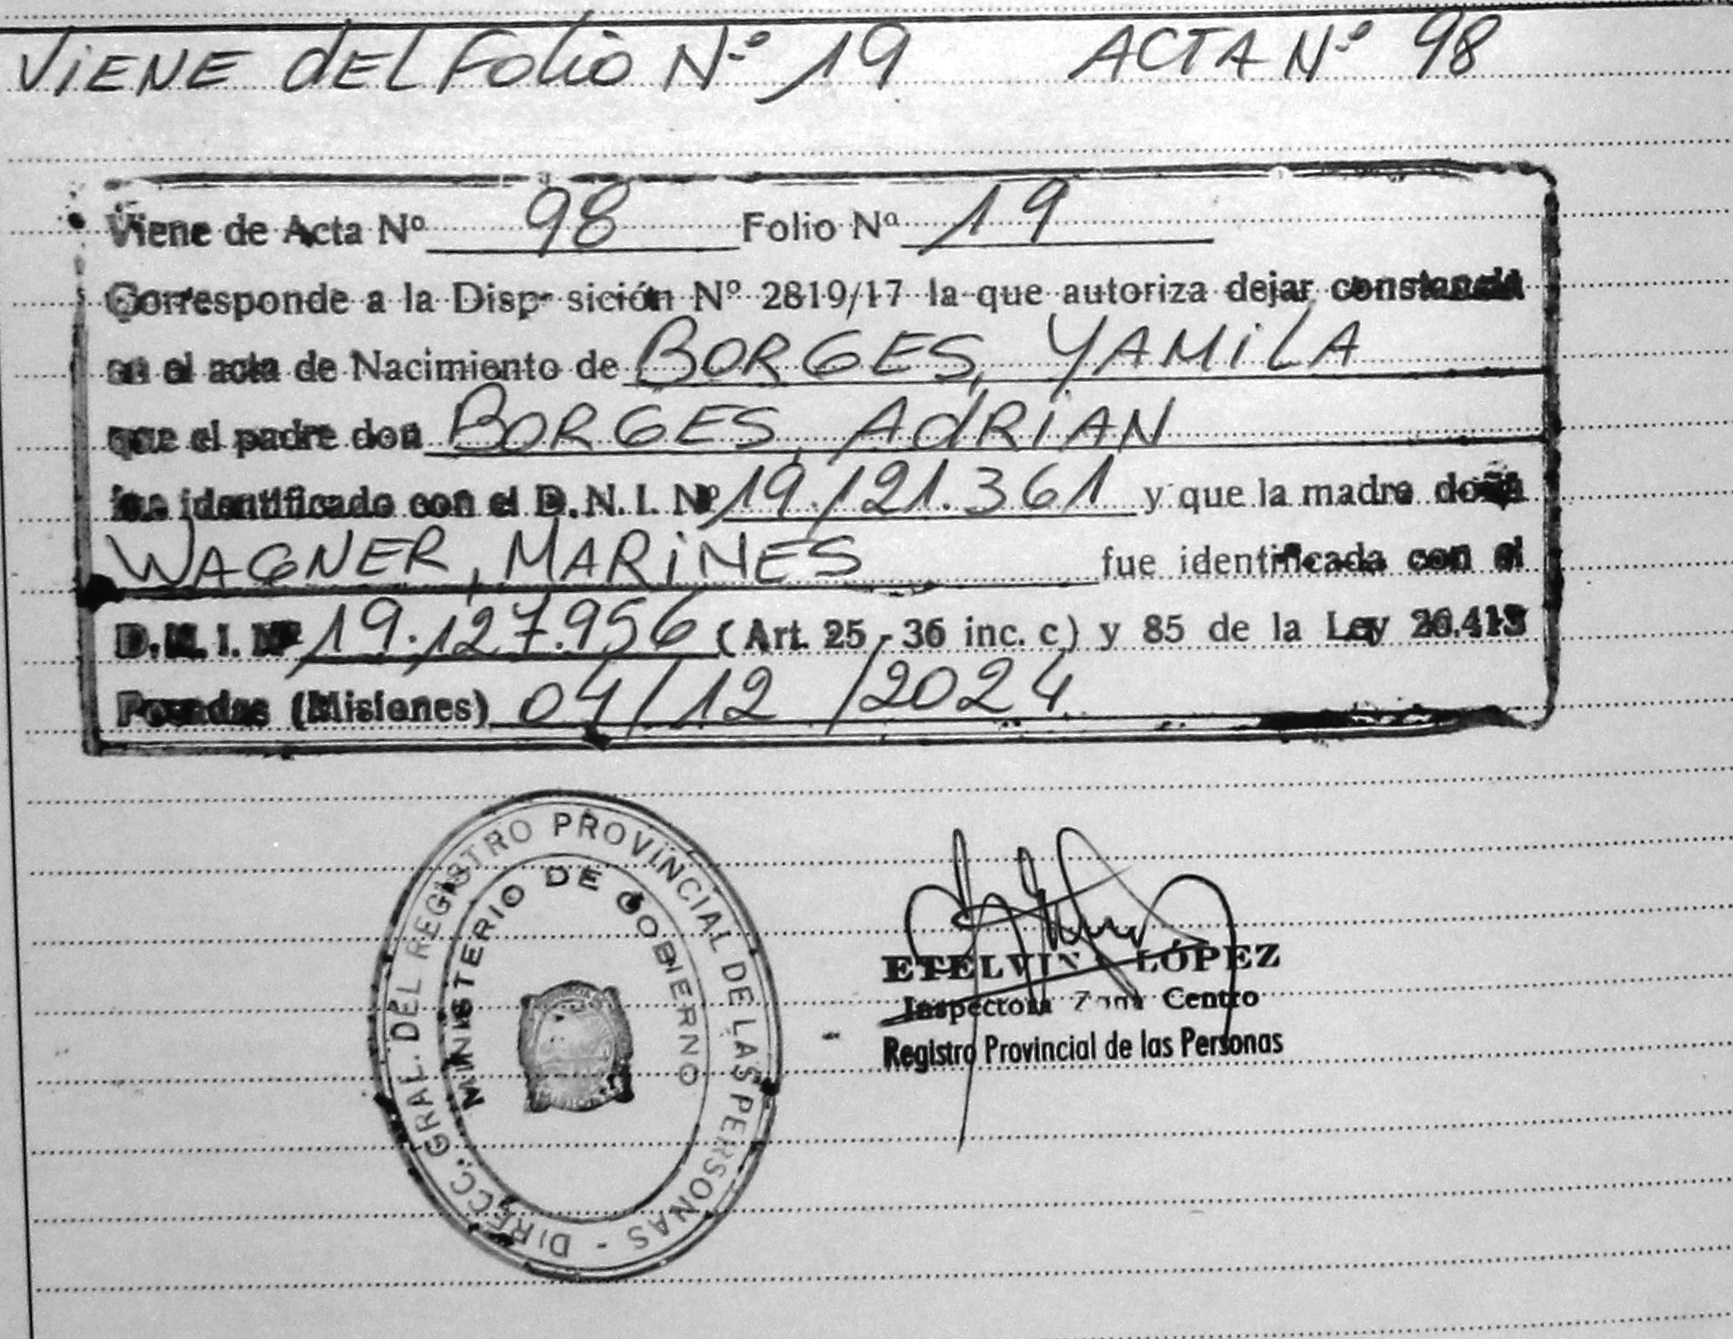 ViENE dEL Folio N.º 19 ACTA Nº 98
Viene de Acta Nº 98 Folio Nº 19
Corresponde a la Disp- sición Nº 2819/17 la que autoriza dejar constancia
en el acta de Nacimiento de BORGES, YAMiLA
que el padre don BORGES, AdRiAN
fue identificado con el D.N.I. Nº 19.121.361 y que la madre doña
WAGNER, MARiNES fue identificada con el
D.N.I. Nº 19.127.956 (Art. 25 - 36 inc. c) y 85 de la Ley 26.413
Posadas (Misiones) 04/12/2024
DIRECC. GRAL. DEL REGISTRO PROVINCIAL DE LAS PERSONAS -
MINISTERIO DE GOBIERNO
ETELVINA LÓPEZ
Inspectora Zona Centro
Registro Provincial de las Personas